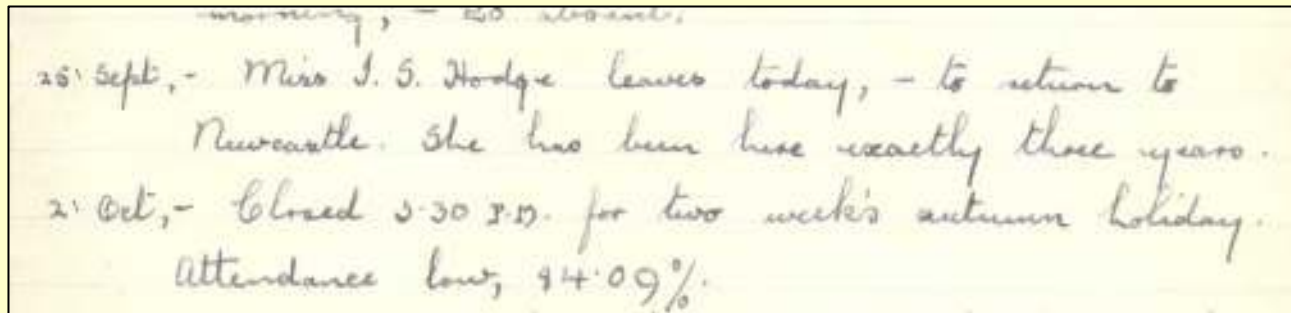 morning, - 20 absent.
25' Sept,- Miss I. S. Hodge leaves today, - to return to
Newcastle. She has been here exactly three years.
2' Oct,- Closed 3.30 P.M. for two week's autumn holiday.
Attendance low, 84.09%.